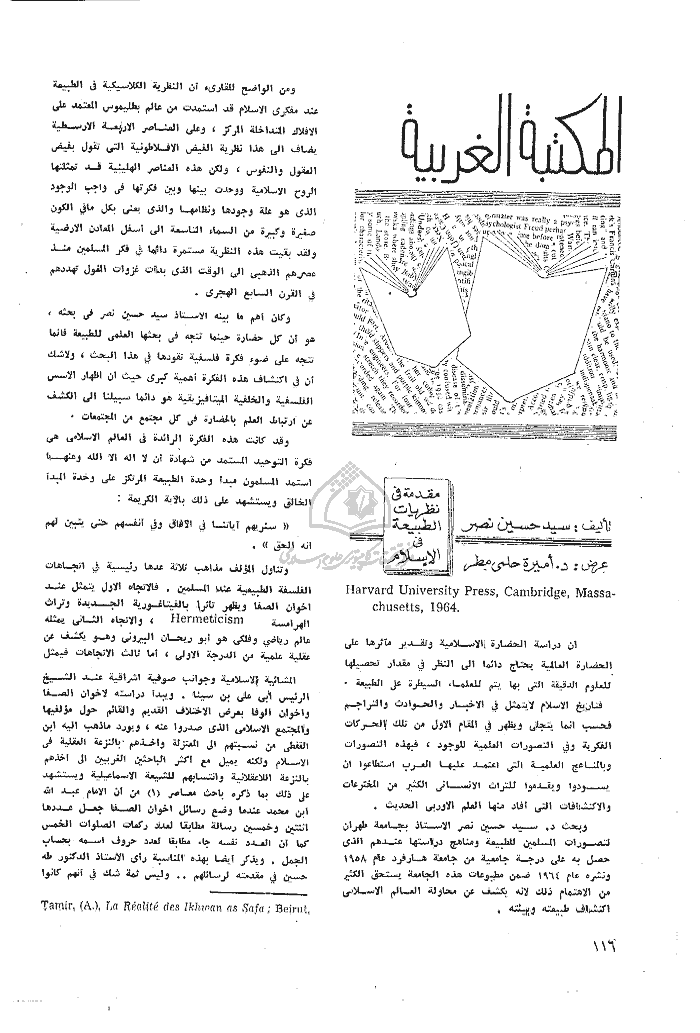 المكتبة الغربية
مقدمة فى
نظريات
الطبيعة
فى
الإسلام
تأليف : سيد حسين نصر
عرض : د. أميرة حلمى مطر
Harvard University Press, Cambridge, Massa-
chusetts, 1964.
ان دراسة الحضارة الاسلامية وتقدير مآثرها على
الحضارة العالمية يحتاج دائما الى النظر فى مقدار تحصيلها
للعلوم الدقيقة التى بها يتم للعلماء السيطرة على الطبيعة ·
فتاريخ الاسلام لايتمثل فى الاخبار والحوادث والتراجم
فحسب انما يتجلى ويظهر فى المقام الاول من تلك الحركات
الفكرية وفى التصورات العلمية للوجود ، فبهذه التصورات
وبالمناهج العلمية التى اعتمد عليها العرب استطاعوا ان
يسودوا ويقدموا للتراث الانسانى الكثير من المخترعات
والاكتشافات التى أفاد منها العلم الاوربى الحديث ·
وبحث د. سيد حسين نصر الاستاذ بجامعة طهران
لتصورات المسلمين للطبيعة ومناهج دراستها عندهم الذى
حصل به على درجة جامعية من جامعة هارفرد عام ١٩٥٨
ونشره عام ١٩٦٤ ضمن مطبوعات هذه الجامعة يستحق الكثير
من الاهتمام ذلك لانه يكشف عن محاولة العالم الاسلامى
اكتشاف طبيعته وبيئته ·
ومن الواضح للقارىء أن النظرية الكلاسيكية فى الطبيعة
عند مفكرى الاسلام قد استمدت من عالم بطليموس المعتمد على
الافلاك المتداخلة المركز ، وعلى العناصر الاربعة الارسطية
يضاف الى هذا نظرية الفيض الافلاطونية التى تقول بفيض
العقول والنفوس ، ولكن هذه العناصر الهلينية قد تمثلتها
الروح الاسلامية ووحدت بينها وبين فكرتها فى واجب الوجود
الذى هو علة وجودها ونظامها والذى يعنى بكل مافى الكون
صغيرة وكبيرة من السماء التاسعة الى أسفل المعادن الارضية
ولقد بقيت هذه النظرية مستمرة دائما فى فكر المسلمين منذ
عصرهم الذهبى الى الوقت الذى بدأت غزوات المغول تهددهم
فى القرن السابع الهجرى ·
وكان أهم ما بينه الاستاذ سيد حسين نصر فى بحثه ،
هو أن كل حضارة حينما تتجه فى بحثها العلمى للطبيعة فانما
تتجه على ضوء فكرة فلسفية تقودها فى هذا البحث ، ولاشك
أن فى اكتشاف هذه الفكرة أهمية كبرى حيث ان اظهار الاسس
الفلسفية والخلفية الميتافيزيقية هو دائما سبيلنا الى الكشف
عن ارتباط العلم بالحضارة فى كل مجتمع من المجتمعات ·
وقد كانت هذه الفكرة الرائدة فى العالم الاسلامى هى
فكرة التوحيد المستمد من شهادة أن لا اله الا الله وعنها
استمد المسلمون مبدأ وحدة الطبيعة المرتكز على وحدة المبدأ
الخالق ويستشهد على ذلك بالآية الكريمة :
« سنريهم آياتنا فى الآفاق وفى أنفسهم حتى يتبين لهم
انه الحق » ·
وتناول المؤلف مذاهب ثلاثة عدها رئيسية فى اتجاهات
الفلسفة الطبيعية عند المسلمين · فالاتجاه الاول يتمثل عند
اخوان الصفا ويظهر تأثرا بالفيثاغورية الجديدة وتراث
الهرامسة Hermeticism ، والاتجاه الثانى يمثله
عالم رياضى وفلكى هو أبو ريحان البيرونى وهو يكشف عن
عقلية علمية من الدرجة الاولى ، أما ثالث الاتجاهات فيمثل
المشائية الاسلامية وجوانب صوفية اشراقية عند الشيخ
الرئيس أبى على بن سينا · ويبدأ دراسته لاخوان الصفا
واخوان الوفا بعرض الاختلاف القديم والقائم حول مؤلفيها
والمجتمع الاسلامى الذى صدروا عنه ، ويورد ماذهب اليه ابن
القفطى من نسبتهم الى المعتزلة وأخذهم بالنزعة العقلية فى
الاسلام ولكنه يميل مع أكثر الباحثين الغربيين الى أخذهم
بالنزعة اللاعقلانية وانتسابهم للشيعة الاسماعيلية ويستشهد
على ذلك بما ذكره باحث معاصر (١) من أن الامام عبد الله
ابن محمد عندما وضع رسائل اخوان الصفا جعل عددها
اثنتين وخمسين رسالة مطابقا لعدد ركعات الصلوات الخمس
كما أن العدد نفسه جاء مطابقا لعدد حروف اسمه بحساب
الجمل · ويذكر أيضا بهذه المناسبة رأى الاستاذ الدكتور طه
حسين فى مقدمته لرسائلهم ·· وليس ثمة شك فى أنهم كانوا
Tamir, (A.), La Réalité des Ikhwan as Safa ; Beirut,
١١٦